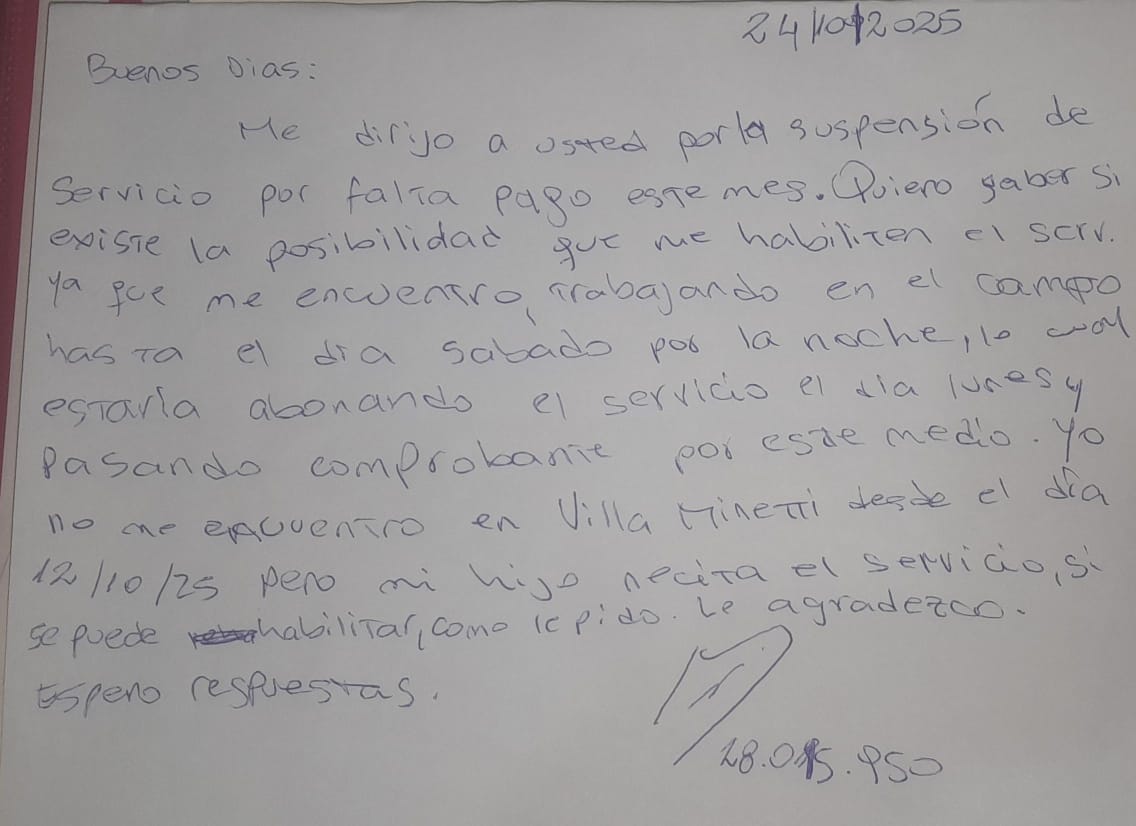 24/10/2025
Buenos Dias:
Me dirijo a usted por la suspensión de
Servicio por falta pago este mes. Quiero saber si
existe la posibilidad que me habiliten el serv.
ya que me encuentro, trabajando en el campo
hasta el dia sabado por la noche, lo cual
estaría abonando el servicio el dia lunes y
pasando comprobante por este medio. Yo
no me encuentro en Villa Minetti desde el día
12/10/25 pero mi hijo necita el servicio, si
se puede habilitar, como le pido. Le agradezco.
Espero respuestas.
28.015.950